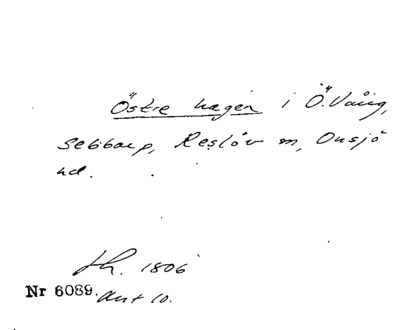 Östre hagen i Ö. Vång,
Sebbarp, Reslöv sn, Onsjö
hd.
Lh. 1806
Nr 6089. Akt 10.